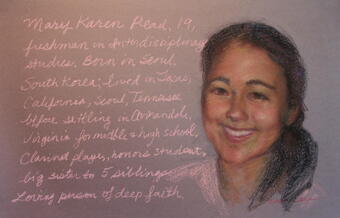 Mary Karen Read, 19,
freshman in Interdisciplinary
studies. Born in Seoul,
South Korea; lived in Texas,
California, Seoul, Tennessee
before settling in Annandale,
Virginia for middle & high school,
Clarinet player, honors student,
big sister to 5 siblings.
Loving person of deep faith